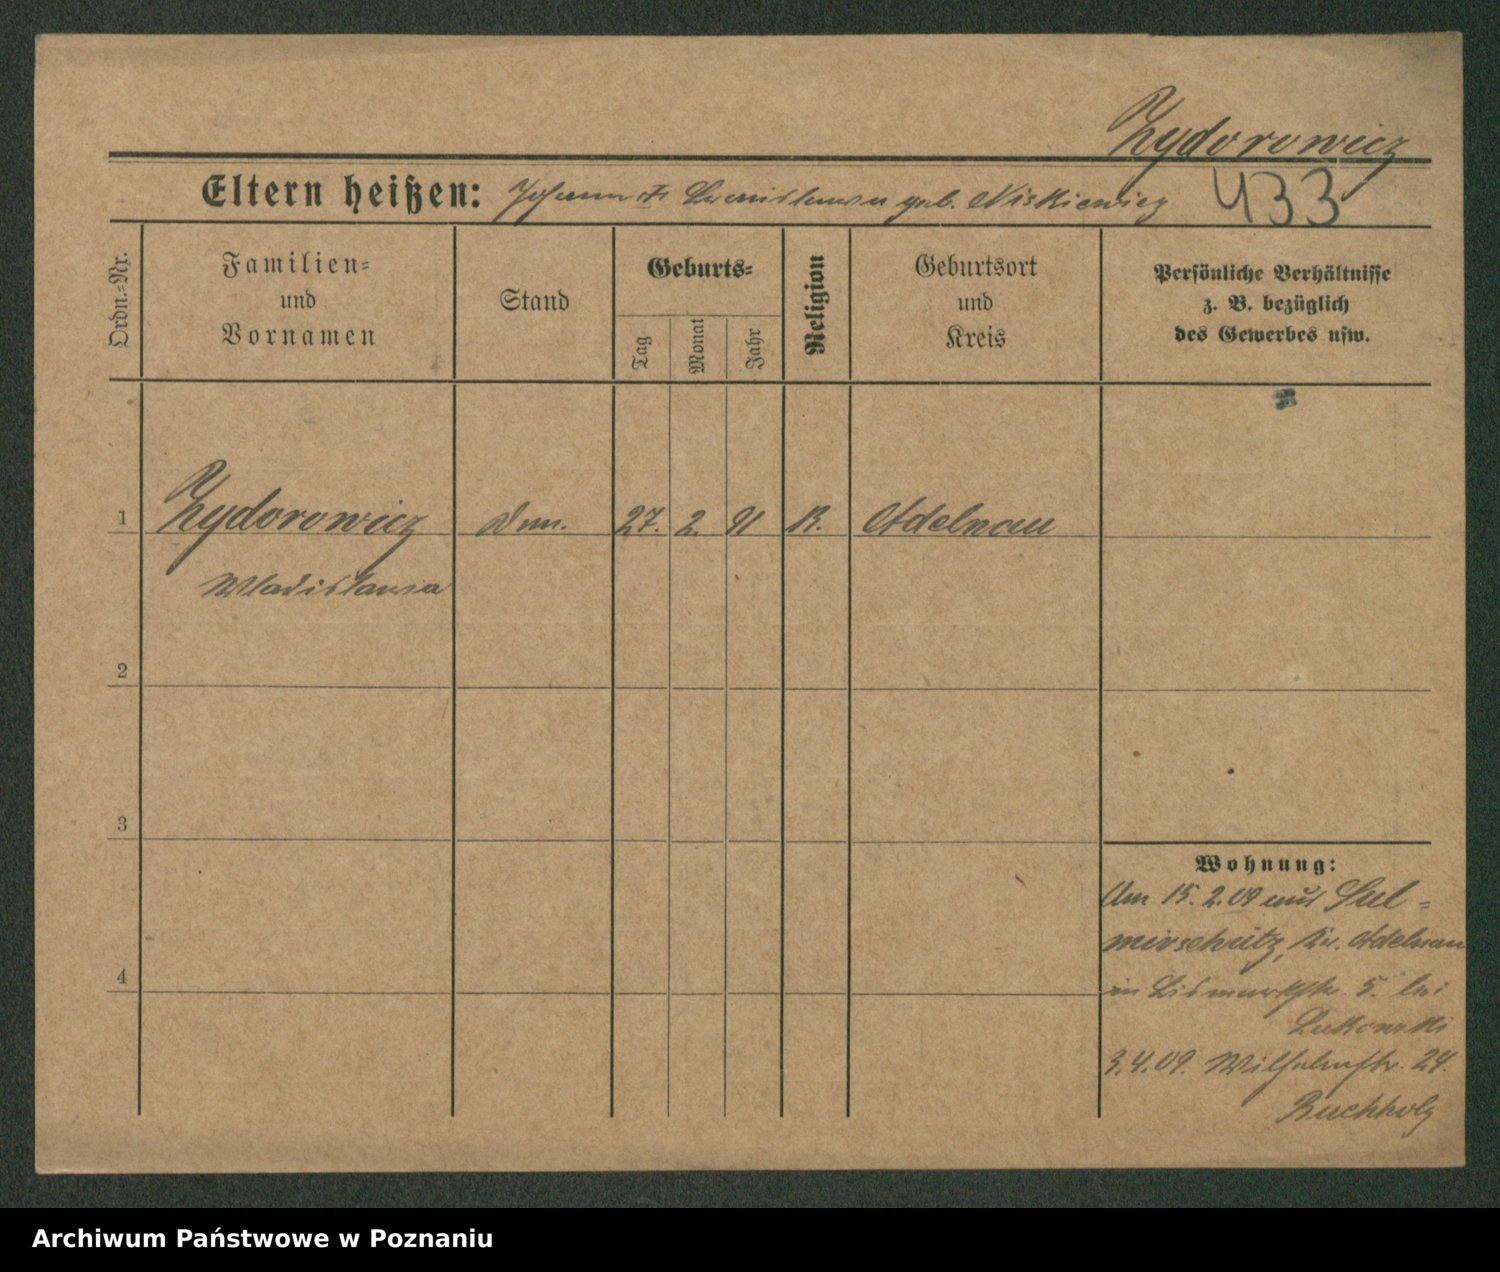 Zydorowicz
Eltern heißen: Johann u. Bronislawa geb. Niskiewicz 433
Ordn.-Nr.
Familien-
und
Vornamen
Stand
Geburts-
Tag
Monat
Jahr
Religion
Geburtsort
und
Kreis
Persönliche Verhältnisse
z. B. bezüglich
des Gewerbes usw.
1 Zydorowicz 27. 2. 91 K. Adelnau
Wladislawa
2
3
4
Wohnung:
Am 15.2.09 aus Sul-
mirschütz, Kr. Adelnau
in Bismarckstr. 5. bei
3.4.09. Wilhelmstr. 24.
Buchholz
Archiwum Państwowe w Poznaniu